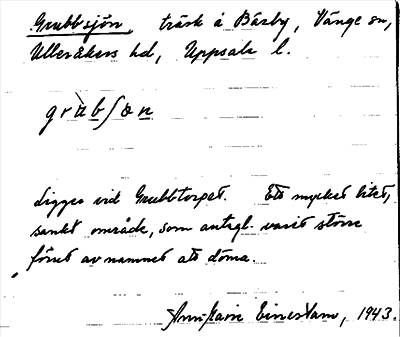 Grubbsjön, träsk å Bärby, Vänge sn,
Ulleråkers hd, Uppsala l.
grùbʃœn
Ligger vid Grubbtorpet. Ett mycket litet,
sankt område, som antagl. varit större
förut av namnet att döma.
1943.